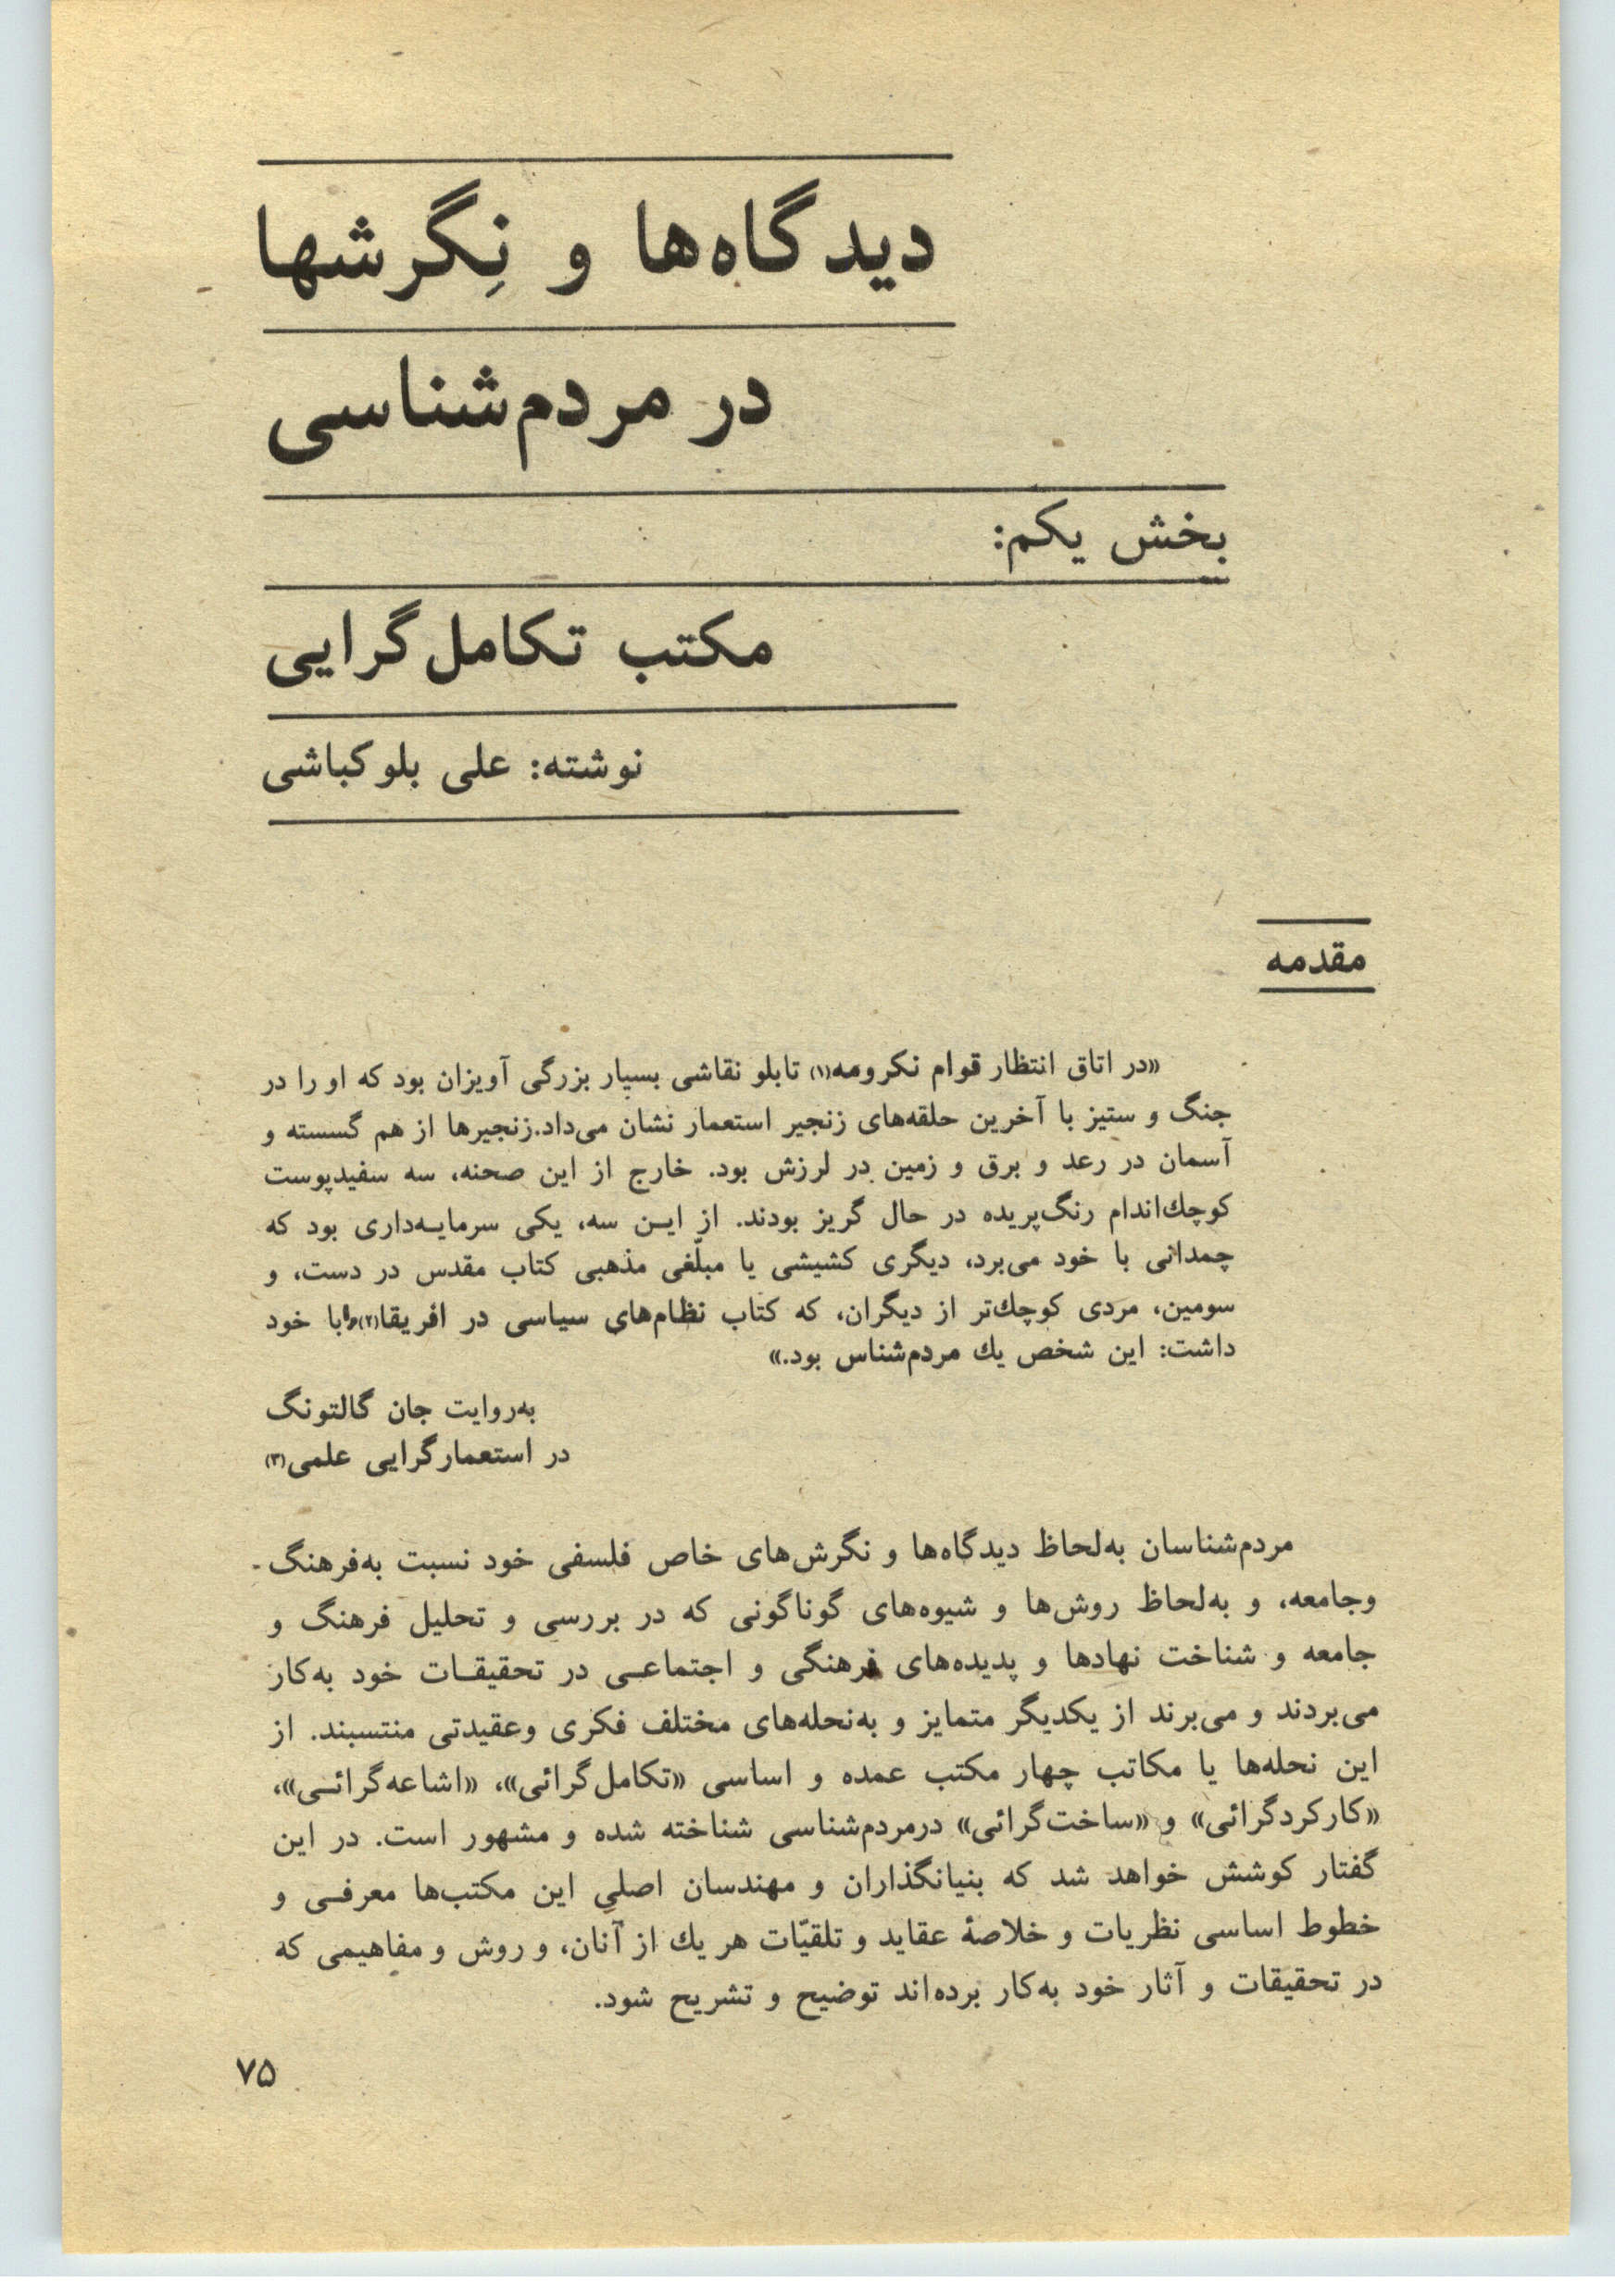 دیدگاه‌ها و نِگرشها
در مردم‌شناسی
بخش یکم:
مکتب تکامل‌گرایی
نوشته: علی بلوکباشی
مقدمه
«در اتاق انتظار قوام نکرومه(۱) تابلو نقاشی بسیار بزرگی آویزان بود که او را در
جنگ و ستیز با آخرین حلقه‌های زنجیر استعمار نشان می‌داد.زنجیرها از هم گسسته و
آسمان در رعد و برق و زمین در لرزش بود. خارج از این صحنه، سه سفیدپوست
کوچك‌اندام رنگ‌پریده در حال گریز بودند. از ایـن سه، یکی سرمایـه‌داری بود که
چمدانی با خود می‌برد، دیگری کشیشی یا مبلّغی مذهبی کتاب مقدس در دست، و
سومین، مردی کوچك‌تر از دیگران، که کتاب نظام‌های سیاسی در افریقا(۲)را با خود
داشت: این شخص یك مردم‌شناس بود.»
به‌روایت جان گالتونگ
در استعمارگرایی علمی(۳)
مردم‌شناسان به‌لحاظ دیدگاه‌ها و نگرش‌های خاص فلسفی خود نسبت به‌فرهنگ -
وجامعه، و به‌لحاظ روش‌ها و شیوه‌های گوناگونی که در بررسی و تحلیل فرهنگ و
جامعه و شناخت نهادها و پدیده‌های فرهنگی و اجتماعـی در تحقیقـات خود به‌کار
می‌بردند و می‌برند از یکدیگر متمایز و به‌نحله‌های مختلف فکری وعقیدتی منتسبند. از
این نحله‌ها یا مکاتب چهار مکتب عمده و اساسی «تکامل‌گرائی»، «اشاعه‌گرائـی»،
«کارکردگرائی» و «ساخت‌گرائی» درمردم‌شناسی شناخته شده و مشهور است. در این
گفتار کوشش خواهد شد که بنیانگذاران و مهندسان اصلیِ این مکتب‌ها معرفـی و
خطوط اساسی نظریات و خلاصهٔ عقاید و تلقیّات هر یك از آنان، و روش و مفاهیمی که
در تحقیقات و آثار خود به‌کار برده‌اند توضیح و تشریح شود.
۷۵